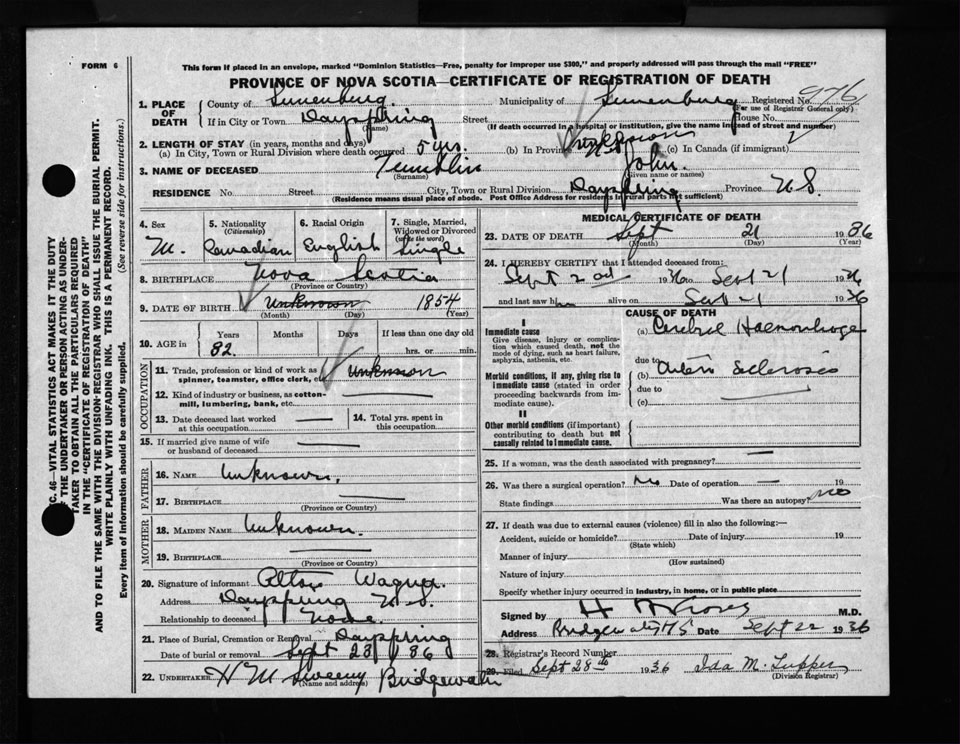 FORM 6
This form if placed in an envelope, marked "Dominion Statistics—Free, penalty for improper use $300," and properly addressed will pass through the mail "FREE"
PROVINCE OF NOVA SCOTIA—CERTIFICATE OF REGISTRATION OF DEATH
976
1. PLACE OF DEATH
County of Lunenburg Municipality of Lunenburg Registered No.
(For use of Registrar General only)
If in City or Town Dayspring Street House No.
(Name) (If death occurred in a hospital or institution, give the name instead of street and number)
2. LENGTH OF STAY (in years, months and days)
(a) In City, Town or Rural Division where death occurred 5 yrs. (b) In Province unknown (c) In Canada (if immigrant)
3. NAME OF DECEASED John
(Surname) (Given name or names)
RESIDENCE No. Street City, Town or Rural Division Dayspring Province N.S.
(Residence means usual place of abode. Post Office Address for residents in rural parts not sufficient)
4. Sex
M.
5. Nationality
(Citizenship)
Canadian
6. Racial Origin
English
7. Single, Married, Widowed or Divorced
(write the word)
Single
8. BIRTHPLACE Nova Scotia
(Province or Country)
9. DATE OF BIRTH Unknown 1854
(Month) (Day) (Year)
10. AGE in
Years Months Days If less than one day old
82. hrs. or min.
OCCUPATION
11. Trade, profession or kind of work as spinner, teamster, office clerk, etc. Unknown
12. Kind of industry or business, as cotton-mill, lumbering, bank, etc.
13. Date deceased last worked at this occupation
14. Total yrs. spent in this occupation
15. If married give name of wife or husband of deceased
FATHER
16. NAME Unknown.
17. BIRTHPLACE
(Province or Country)
MOTHER
18. MAIDEN NAME Unknown.
19. BIRTHPLACE
(Province or Country)
20. Signature of informant Wagner.
Address Dayspring N.S.
Relationship to deceased None.
21. Place of Burial, Cremation or Removal Dayspring
Date of burial or removal Sept 23 / 36
22. UNDERTAKER H M Sweeny Bridgewater
(Name and address)
MEDICAL CERTIFICATE OF DEATH
23. DATE OF DEATH Sept 21 1936
(Month) (Day) (Year)
24. I HEREBY CERTIFY that I attended deceased from:
Sept 2nd 1936 to Sept 21 1936
and last saw him alive on Sept 21 1936
CAUSE OF DEATH
I
Immediate cause
Give disease, injury or complication which caused death, not the mode of dying, such as heart failure, asphyxia, asthenia, etc.
(a) Cerebral Haemorrhage
due to
Morbid conditions, if any, giving rise to immediate cause (stated in order proceeding backwards from immediate cause).
(b) Arterio Sclerosis
due to
(c)
II
Other morbid conditions (if important) contributing to death but not causally related to immediate cause.
25. If a woman, was the death associated with pregnancy?
26. Was there a surgical operation? No Date of operation 19
State findings Was there an autopsy? no
27. If death was due to external causes (violence) fill in also the following:—
Accident, suicide or homicide? Date of injury 19
(State which)
Manner of injury
(How sustained)
Nature of injury
Specify whether injury occurred in industry, in home, or in public place
Signed by M.D.
Address Bridgewater NS Date Sept 22 1936
28. Registrar's Record Number
29. Filed Sept 28th 1936 Ida M. Lupper
(Division Registrar)
C. 46—VITAL STATISTICS ACT MAKES IT THE DUTY
OF THE UNDERTAKER OR PERSON ACTING AS UNDERTAKER TO OBTAIN ALL THE PARTICULARS REQUIRED
IN THE "CERTIFICATE OF REGISTRATION OF DEATH"
AND TO FILE THE SAME WITH THE DIVISION-REGISTRAR WHO SHALL ISSUE THE BURIAL PERMIT.
WRITE PLAINLY WITH UNFADING INK. THIS IS A PERMANENT RECORD.
Every item of information should be carefully supplied. (See reverse side for instructions.)